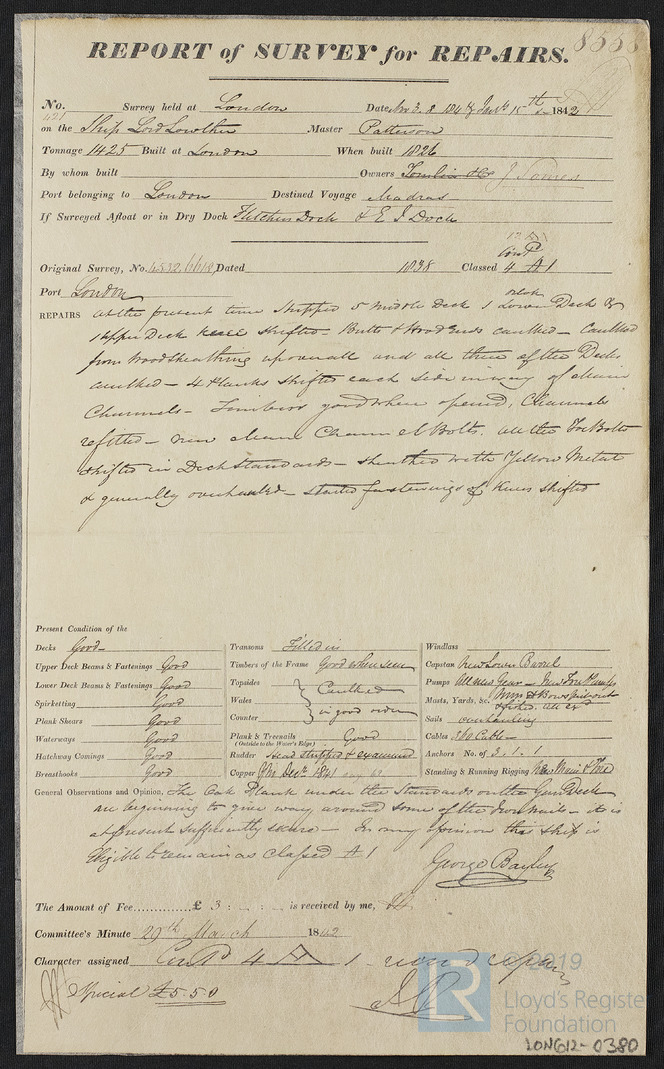 8553
REPORT of SURVEY for REPAIRS.
No. 421 Survey held at London Date Nov 3. 8 184 & 15th 1842
on the Ship Lord Lowther Master Patterson
Tonnage 1425 Built at London When built 1826
By whom built Owners Tomlin & Co J Somes
Port belonging to London Destined Voyage Madras
If Surveyed Afloat or in Dry Dock Fletchers Dock & E I Dock
Original Survey, No. 4532 Dated 1838 Classed 4 A 1
Port London
REPAIRS at the present time shipped 5 middle Deck 1 Lower Deck &
Upper Deck shifted - Butts & Wood Ends caulked - Caulked
from Woodsheathing upwards and all three of the Decks
caulked - 4 Planks shifted each side in way of Main
Channels - Timbers good when opened, Channels
refitted - new Channel Bolts. all the Bolts
shifted in Deck Standards - sheathed with Yellow Metal
& generally overhauled - of knees shifted
Present Condition of the
Decks Good
Upper Deck Beams & Fastenings Good
Lower Deck Beams & Fastenings Good
Spirketting Good
Plank Shears Good
Waterways Good
Hatchway Comings Good
Breasthooks Good
Transoms Filled in
Timbers of the Frame Good when seen
Topsides
Wales
Counter
Caulked
in good order
Plank & Treenails Good
(Outside to the Water's Edge)
Rudder stripped & examined
Copper Decr 1841
Windlass
Capstan New Lower Barrel
Pumps All new Gear - New
Masts, Yards, &c. & Bowsprit out
Sails overhauling
Cables 360
Anchors No. of 3. 1. 1
Standing & Running Rigging New Main & Fore
General Observations and Opinion, The Oak Plank under the Standards on the Gun Deck
are beginning to give way around some of the Iron Nails - it is
at present sufficiently secure - In my opinion this ship is
Eligible to remain as classed A 1
George Bayley
The Amount of Fee..............£ 3 : - : - is received by me,
Committee's Minute 29th March 1842
Character assigned Contd 4 A 1
Special £5.5.0
© 2019
LR
Lloyd's Register
Foundation
LON612-0380